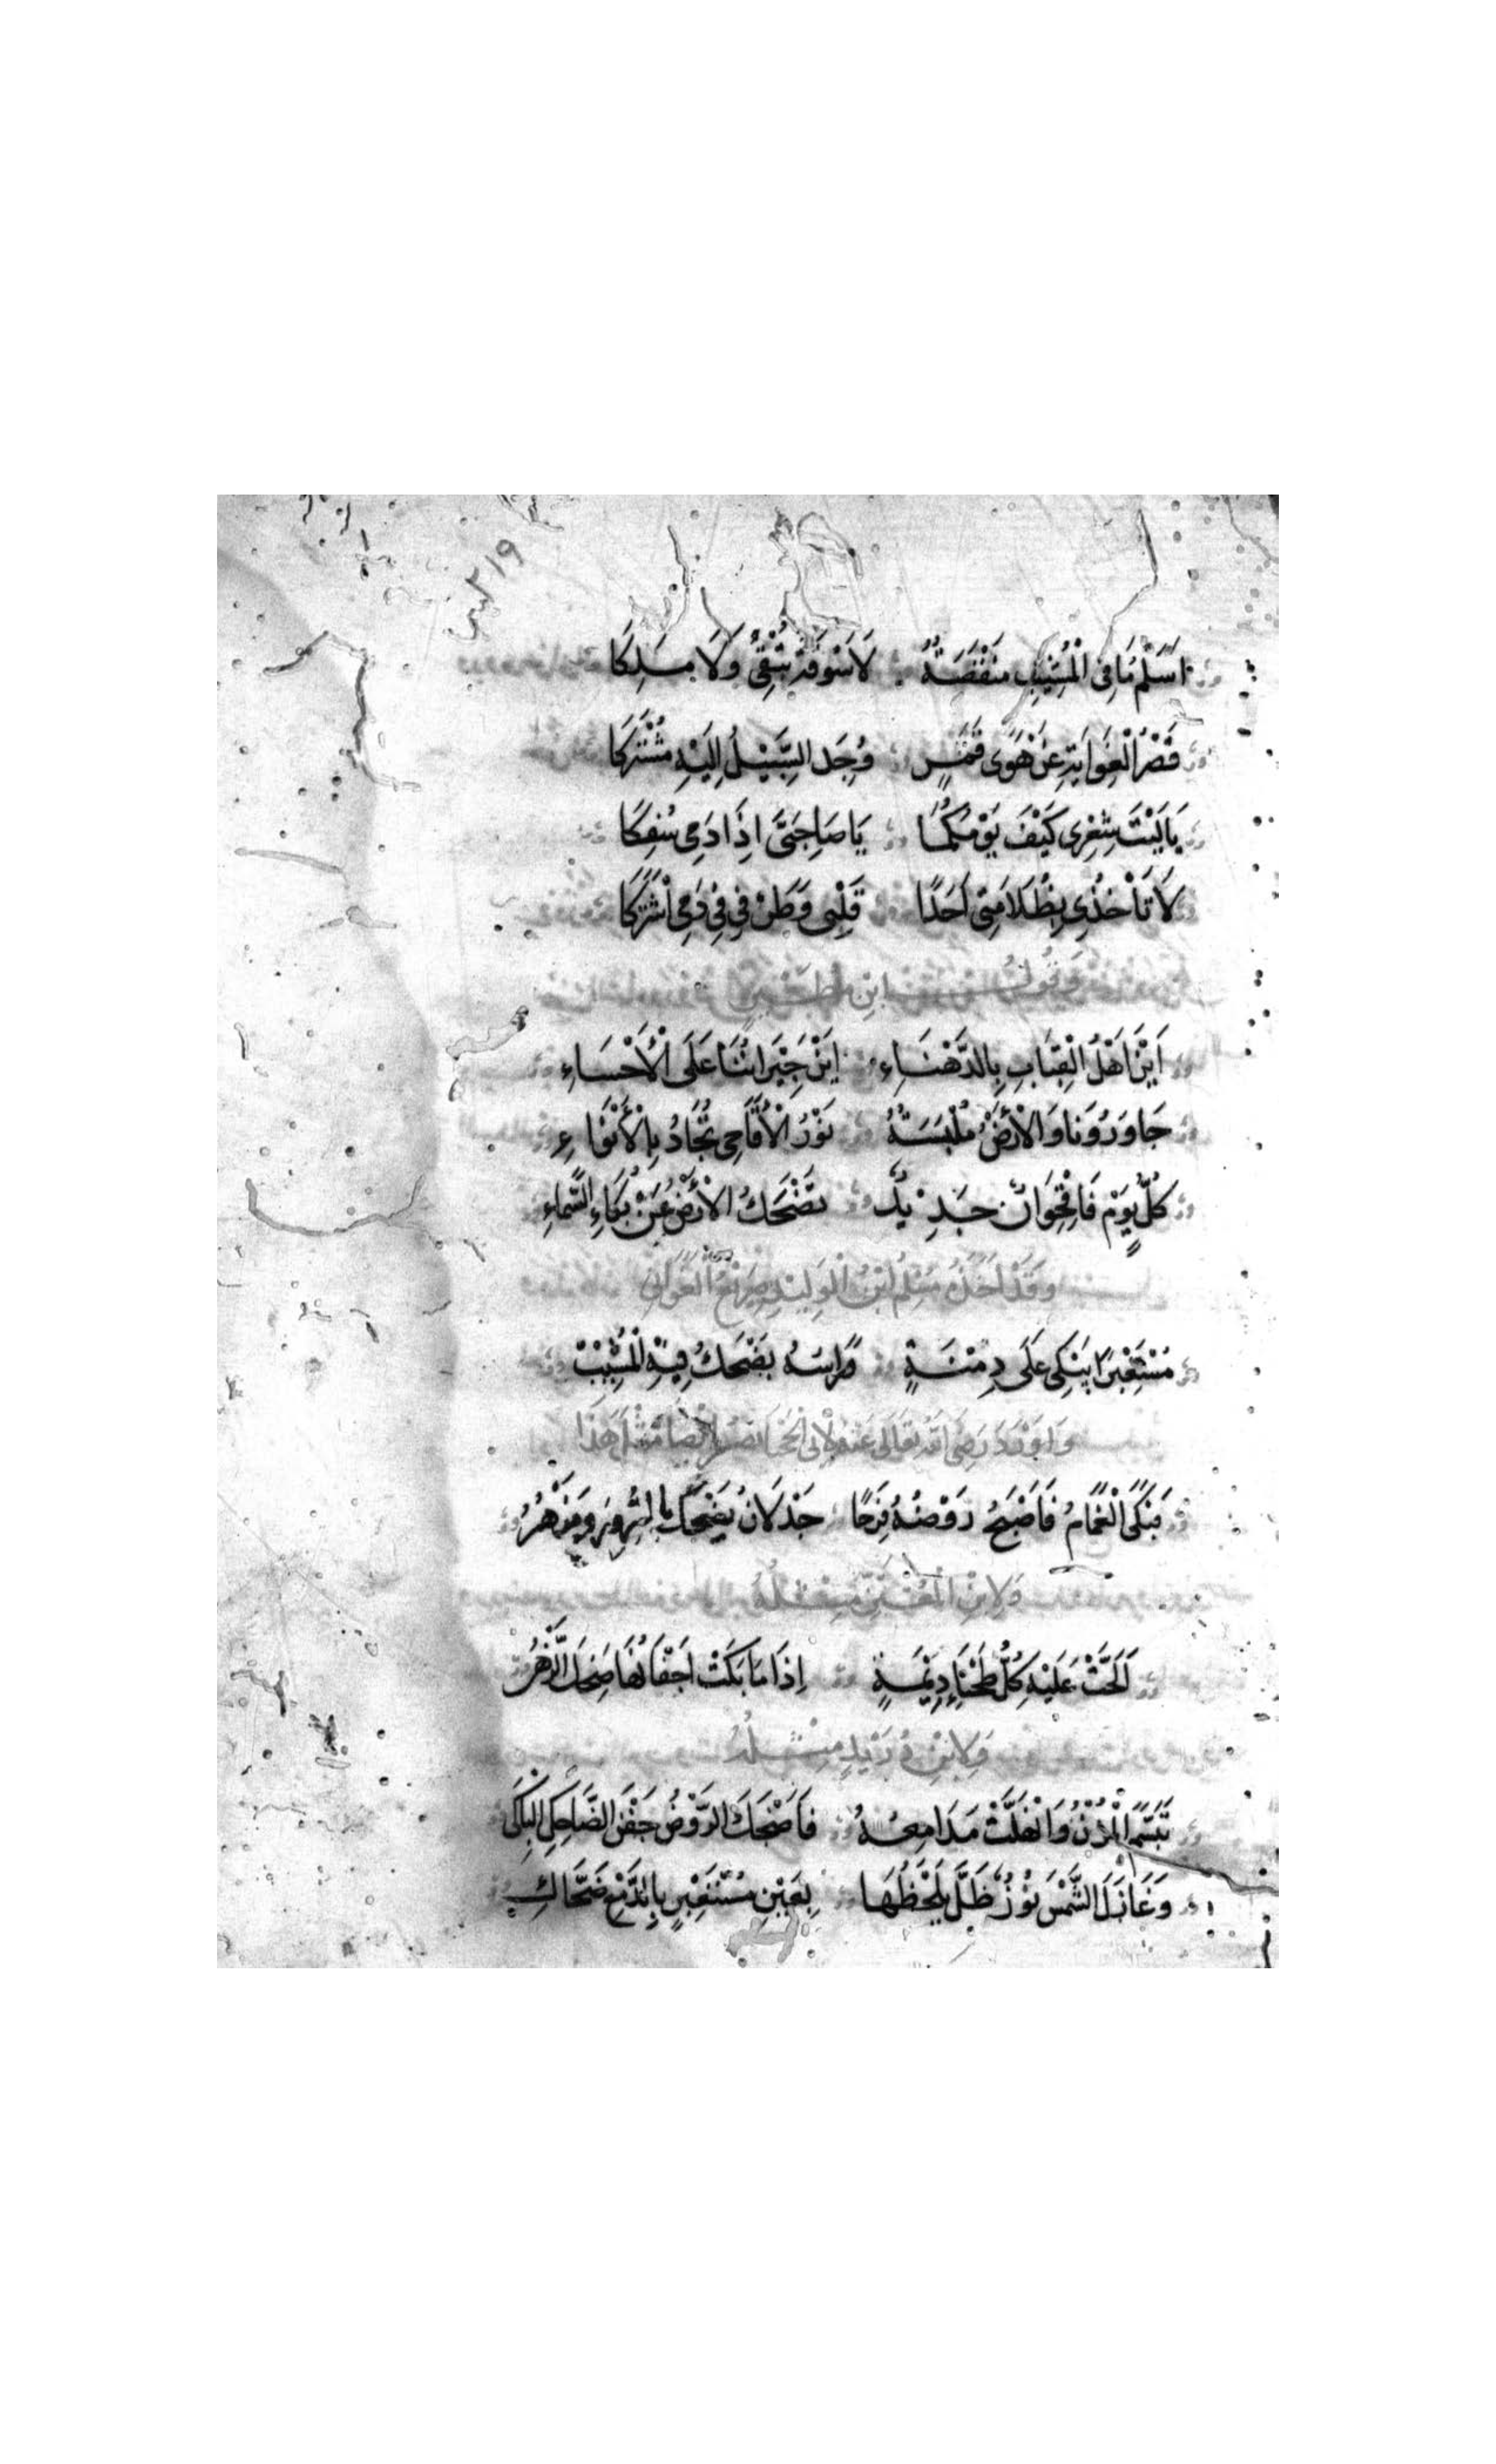 ٢١٩
اَسَلْمُ مَا فِى الْمَشِيْبِ مَنْقَصَةٌ لَا سُوْقَةً يُبْقِى وَلَا مَلِكَا
قَصْرُ الْغِوَايَةِ عَنْ هَوَى قَمَرٍ وُجِدَ السَّبِيْلُ اِلَيْهِ مُشْتَرَكَا
يَا لَيْتَ شِعْرِى كَيْفَ يَوْمُكُمَا يَا صَاحِبَىَّ اِذَا دَمِى سُفِكَا
لَا تَأْخُذِى بِظُلَامَتِى اَحَدًا قَلْبِى وَطَرْفِى فِى دَمِى اشْتَرَكَا
وَقَوْلُ ابْنِ مُطَيْرٍ
اَيْنَ اَهْلُ الْقِبَابِ بِالدَّهْنَاءِ اَيْنَ جِيْرَانُنَا عَلَى الْاَحْسَاءِ
جَاوَرُوْنَا وَالْاَرْضُ مُلْبَسَةٌ نَوْرُ الْاَقَاحِى تُجَادُ بِالْاَنْوَاءِ
كُلَّ يَوْمٍ فَاقْحُوَانٌ جَدِيْدٌ تَضْحَكُ الْاَرْضُ عَنْ بُكَاءِ السَّمَاءِ
وَقَدْ اَخَذَهُ مُسْلِمُ ابْنُ الْوَلِيْدِ صَرِيْعُ الْغَوَانِى
مُسْتَعْبِرًا يَبْكِى عَلَى دِمْنَةٍ وَرَاْسُهُ يَضْحَكُ فِيْهِ الْمَشِيْبْ
وَاَوْرَدَ رَضِىَ اللهُ تَعَالَى عَنْهُ لِاَبِى نَصْرٍ اَيْضًا مِثْلَ هَذَا
فَبَكَى الْغَمَامُ فَاَصْبَحَ رَوْضُهُ فَرِحًا جَذْلَانُ يَضْحَكُ بِالسُّرُوْرِ وَيَزْهَرُ
وَلِابْنِ الْمُعْتَزِّ مِثْلُهُ
اَلَحَّتْ عَلَيْهِ كُلُّ طَخْيَاءِ دِيْمَةٍ اِذَا مَا بَكَتْ اَجْفَانُهَا ضَحِكَ الزَّهْرُ
وَلِابْنِ دُرَيْدٍ مِثْلُهُ
تَبَسَّمَ الْمُزْنُ وَانْهَلَّتْ مَدَامِعُهُ فَاَضْحَكَ الرَّوْضُ جَفْنَ الضَّاحِكِ الْبَاكِى
وَغَازَلَ الشَّمْسَ نُوْرٌ ظَلَّ يَلْحَظُهَا بِعَيْنِ مُسْتَعْبِرٍ بِالدَّمْعِ ضَحَّاكِ